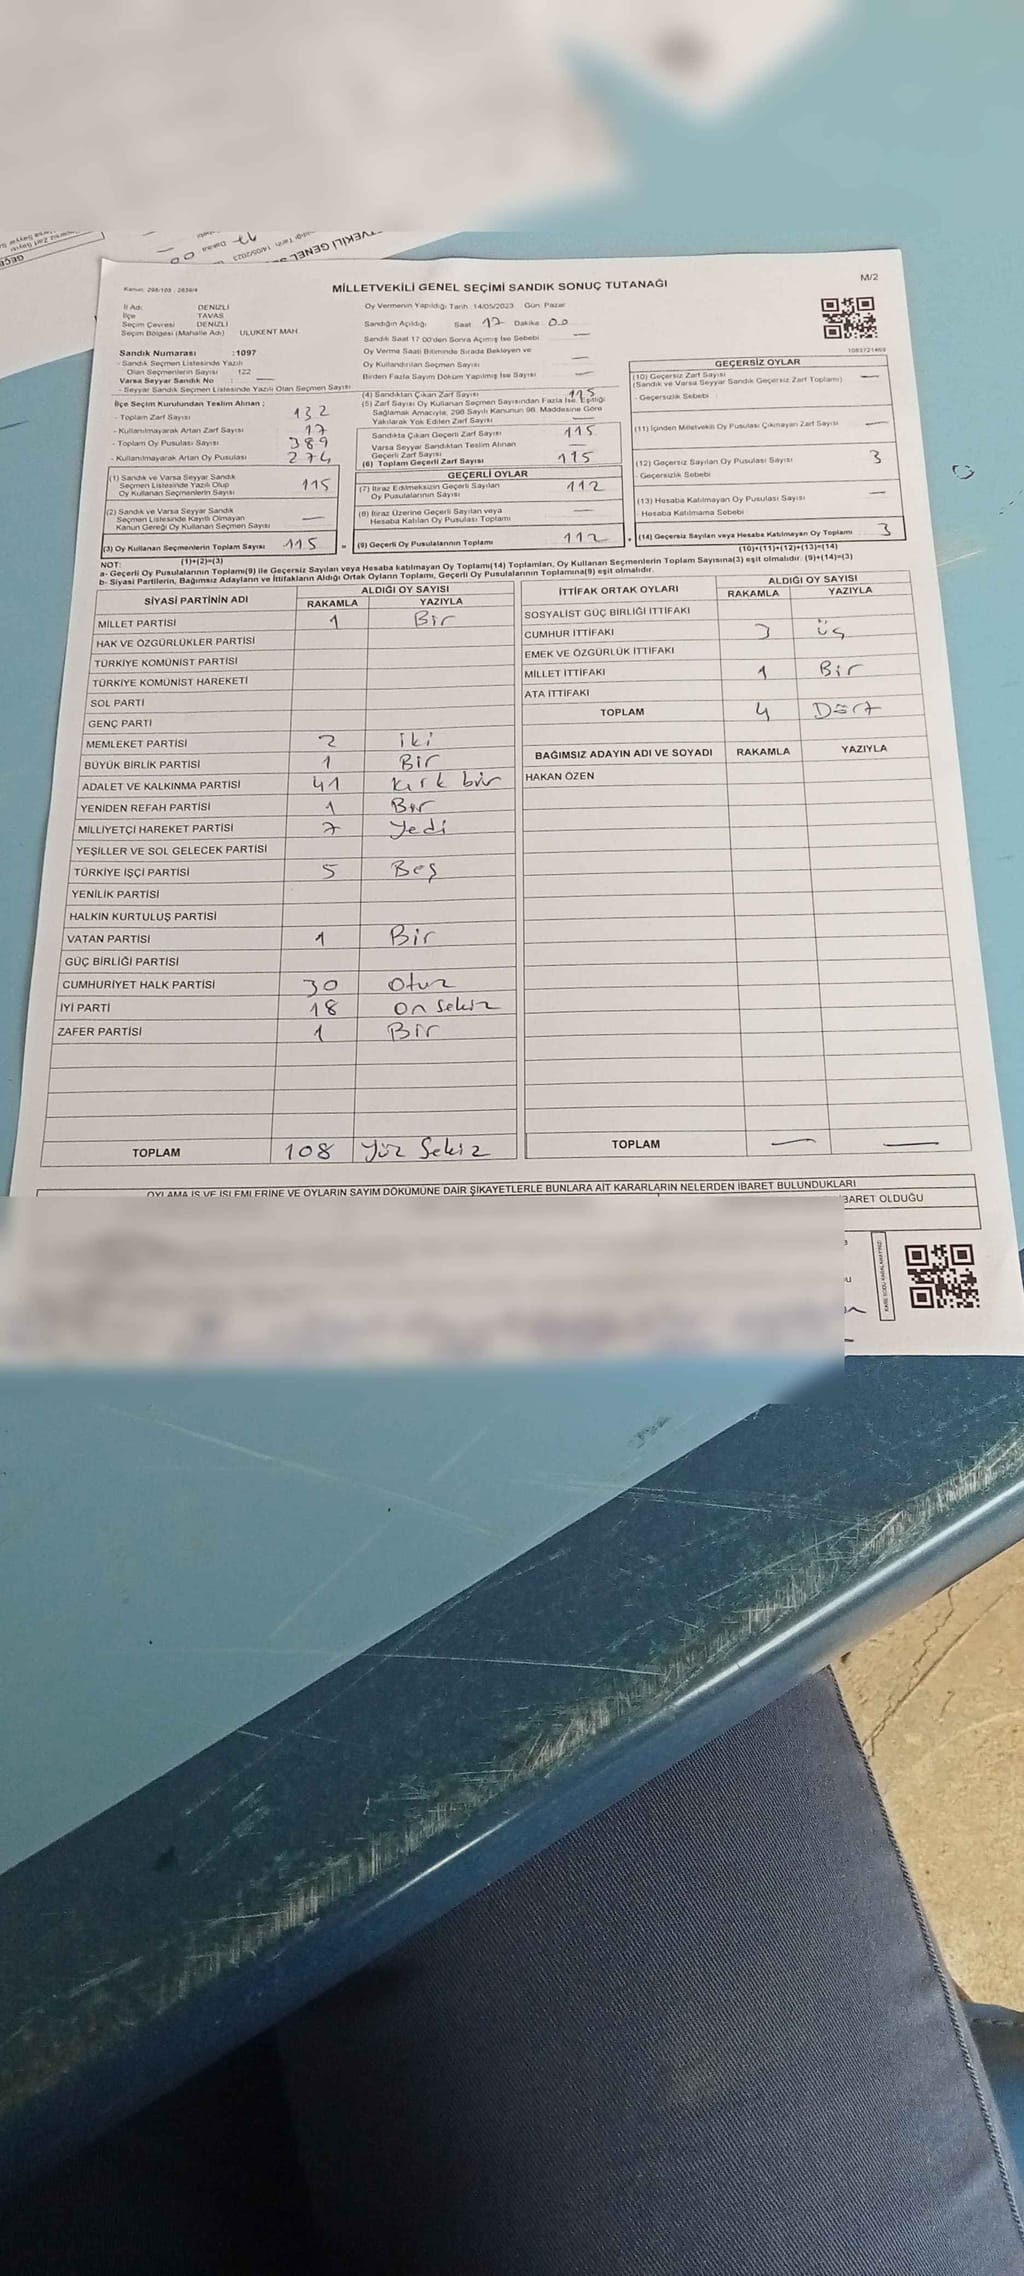 MİLLETVEKİLİ GENEL SEÇİMİ SANDIK SONUÇ TUTANAĞI
M/2
Kanun: 298/105 , 2839/4
İl Adı: DENİZLİ
İlçe TAVAS
Seçim Çevresi DENİZLİ
Seçim Bölgesi (Mahalle Adı) ULUKENT MAH
Sandık Numarası :1097
- Sandık Seçmen Listesinde Yazılı
Olan Seçmenlerin Sayısı : 122
Varsa Seyyar Sandık No : —
- Seyyar Sandık Seçmen Listesinde Yazılı Olan Seçmen Sayısı
İlçe Seçim Kurulundan Teslim Alınan ;
- Toplam Zarf Sayısı 132
- Kullanılmayarak Artan Zarf Sayısı 17
- Toplam Oy Pusulası Sayısı 389
- Kullanılmayarak Artan Oy Pusulası 274
(1) Sandık ve Varsa Seyyar Sandık
Seçmen Listesinde Yazılı Olup
Oy Kullanan Seçmenlerin Sayısı 115
(2) Sandık ve Varsa Seyyar Sandık
Seçmen Listesinde Kayıtlı Olmayan
Kanun Gereği Oy Kullanan Seçmen Sayısı —
(3) Oy Kullanan Seçmenlerin Toplam Sayısı 115
(1)+(2)=(3)
Oy Vermenin Yapıldığı Tarih :14/05/2023 Gün: Pazar
Sandığın Açıldığı Saat: 17 Dakika: 00
Sandık Saat 17:00'den Sonra Açılmış İse Sebebi —
Oy Verme Saati Bitiminde Sırada Bekleyen ve
Oy Kullandırılan Seçmen Sayısı —
Birden Fazla Sayım Döküm Yapılmış İse Sayısı —
(4) Sandıktan Çıkan Zarf Sayısı 115
(5) Zarf Sayısı Oy Kullanan Seçmen Sayısından Fazla İse, Eşitliği
Sağlamak Amacıyla; 298 Sayılı Kanunun 98. Maddesine Göre
Yakılarak Yok Edilen Zarf Sayısı —
Sandıkta Çıkan Geçerli Zarf Sayısı 115
Varsa Seyyar Sandıktan Teslim Alınan
Geçerli Zarf Sayısı —
(6) Toplam Geçerli Zarf Sayısı 115
GEÇERLİ OYLAR
(7) İtiraz Edilmeksizin Geçerli Sayılan
Oy Pusulalarının Sayısı 112
(8) İtiraz Üzerine Geçerli Sayılan veya
Hesaba Katılan Oy Pusulası Toplamı —
= (9) Geçerli Oy Pusulalarının Toplamı 112
1083721469
GEÇERSİZ OYLAR
(10) Geçersiz Zarf Sayısı
(Sandık ve Varsa Seyyar Sandık Geçersiz Zarf Toplamı) —
- Geçersizlik Sebebi
(11) İçinden Milletvekili Oy Pusulası Çıkmayan Zarf Sayısı —
(12) Geçersiz Sayılan Oy Pusulası Sayısı 3
- Geçersizlik Sebebi
(13) Hesaba Katılmayan Oy Pusulası Sayısı —
- Hesaba Katılmama Sebebi
+ (14) Geçersiz Sayılan veya Hesaba Katılmayan Oy Toplamı 3
(10)+(11)+(12)+(13)=(14)
NOT:
a- Geçerli Oy Pusulalarının Toplamı(9) ile Geçersiz Sayılan veya Hesaba katılmayan Oy Toplamı(14) Toplamları, Oy Kullanan Seçmenlerin Toplam Sayısına(3) eşit olmalıdır. (9)+(14)=(3)
b- Siyasi Partilerin, Bağımsız Adayların ve İttifakların Aldığı Ortak Oyların Toplamı, Geçerli Oy Pusulalarının Toplamına(9) eşit olmalıdır.
SİYASİ PARTİNİN ADI ALDIĞI OY SAYISI
RAKAMLA YAZIYLA
MİLLET PARTİSİ 1 Bir
HAK VE ÖZGÜRLÜKLER PARTİSİ
TÜRKİYE KOMÜNİST PARTİSİ
TÜRKİYE KOMÜNİST HAREKETİ
SOL PARTİ
GENÇ PARTİ
MEMLEKET PARTİSİ 2 iki
BÜYÜK BİRLİK PARTİSİ 1 Bir
ADALET VE KALKINMA PARTİSİ 41 Kırk bir
YENİDEN REFAH PARTİSİ 1 Bir
MİLLİYETÇİ HAREKET PARTİSİ 7 Yedi
YEŞİLLER VE SOL GELECEK PARTİSİ
TÜRKİYE İŞÇİ PARTİSİ 5 Beş
YENİLİK PARTİSİ
HALKIN KURTULUŞ PARTİSİ
VATAN PARTİSİ 1 Bir
GÜÇ BİRLİĞİ PARTİSİ
CUMHURİYET HALK PARTİSİ 30 Otuz
İYİ PARTİ 18 On sekiz
ZAFER PARTİSİ 1 Bir
TOPLAM 108 Yüz Sekiz
İTTİFAK ORTAK OYLARI ALDIĞI OY SAYISI
RAKAMLA YAZIYLA
SOSYALİST GÜÇ BİRLİĞİ İTTİFAKI
CUMHUR İTTİFAKI 3 üç
EMEK VE ÖZGÜRLÜK İTTİFAKI
MİLLET İTTİFAKI 1 Bir
ATA İTTİFAKI
TOPLAM 4 Dört
BAĞIMSIZ ADAYIN ADI VE SOYADI RAKAMLA YAZIYLA
HAKAN ÖZEN
TOPLAM — —
OYLAMA İŞ VE İŞLEMLERİNE VE OYLARIN SAYIM DÖKÜMÜNE DAİR ŞİKAYETLERLE BUNLARA AİT KARARLARIN NELERDEN İBARET BULUNDUKLARI
İBARET OLDUĞU